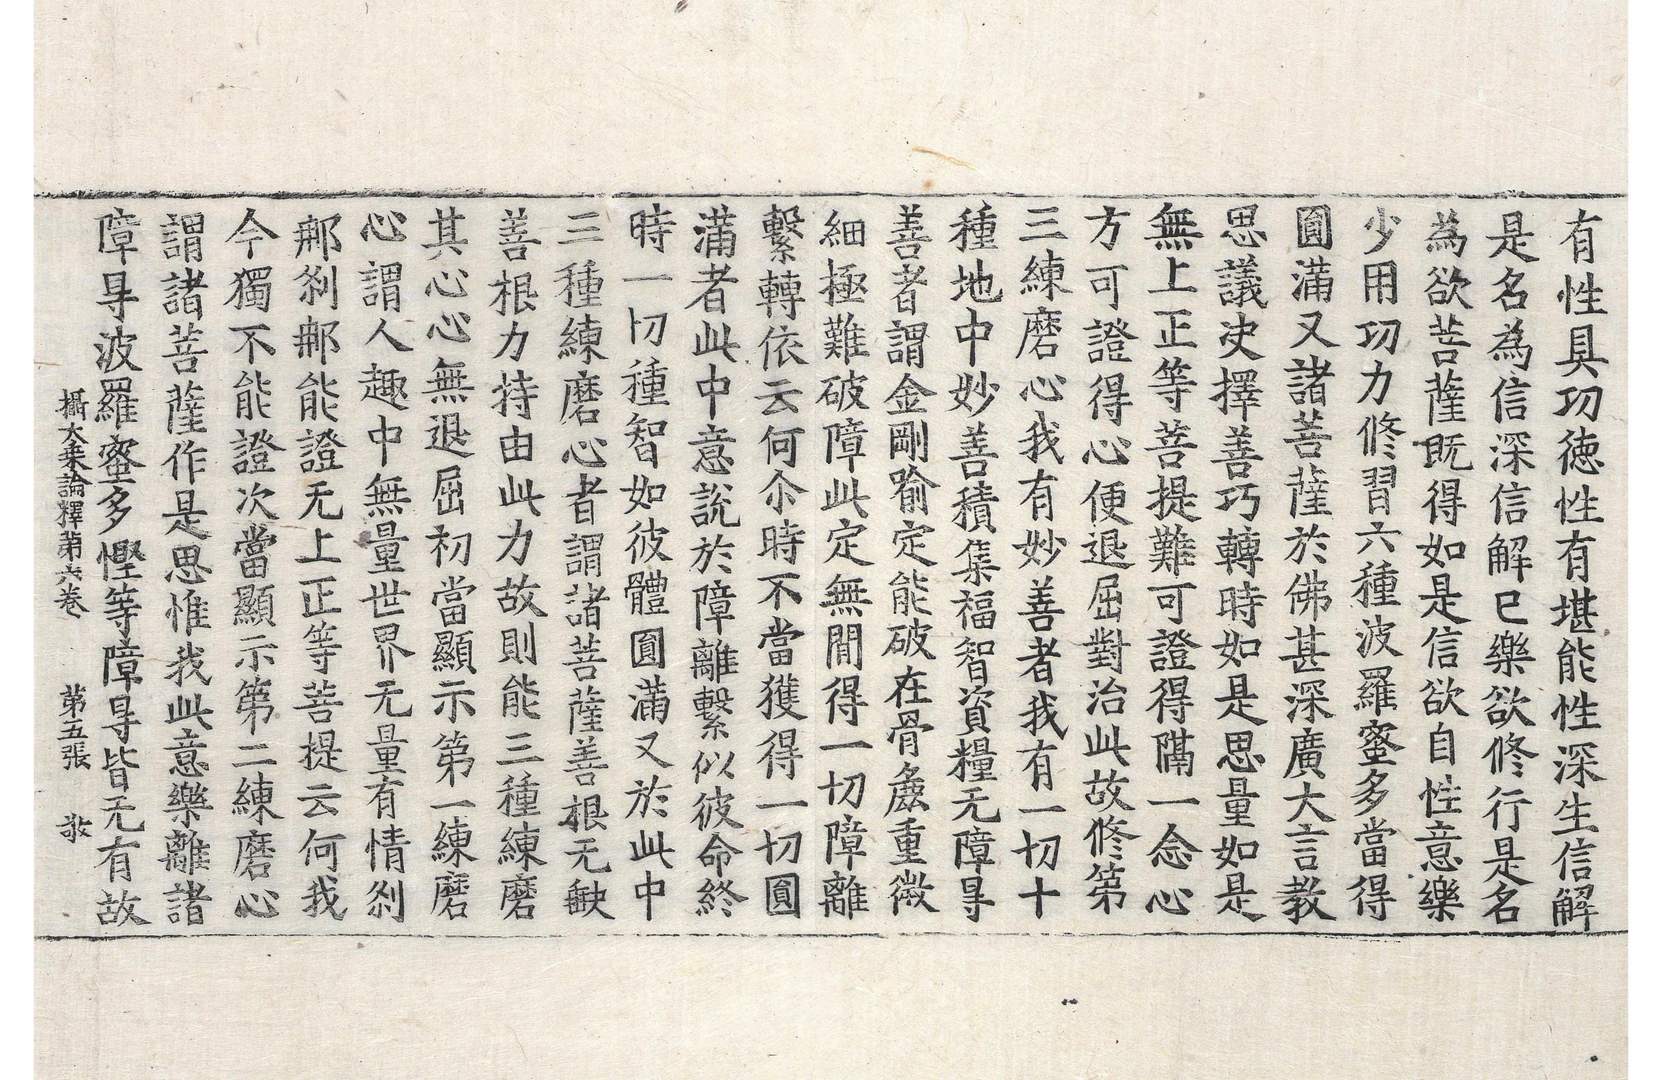 有性具功徳性有堪能性深生信解
是名為信深信解已樂欲修行是名
為欲菩薩既得如是信欲自性意樂
少用功力修習六種波羅蜜多當得
圓滿又諸菩薩於佛甚深廣大言教
思議決擇善巧轉時如是思量如是
無上正等菩提難可證得隔一念心
方可證得心便退屈對治此故修第
三練磨心我有妙善者我有一切十
種地中妙善積集福智資糧无障㝵
善者謂金剛喻定能破在骨麁重微
細極難破障此定無間得一切障離
繫轉依云何尒時不當獲得一切圓
滿者此中意說於障離繫似彼命終
時一切種智如彼體圓滿又於此中
三種練磨心者謂諸菩薩善根无缺
善根力持由此力故則能三種練磨
其心心無退屈初當顯示第一練磨
心謂人趣中無量世界无量有情剎
那剎那能證无上正等菩提云何我
今獨不能證次當顯示第二練磨心
謂諸菩薩作是思惟我此意樂離諸
障㝵波羅蜜多慳等障㝵皆无有故
攝大乗論釋第六卷 第五張 敬